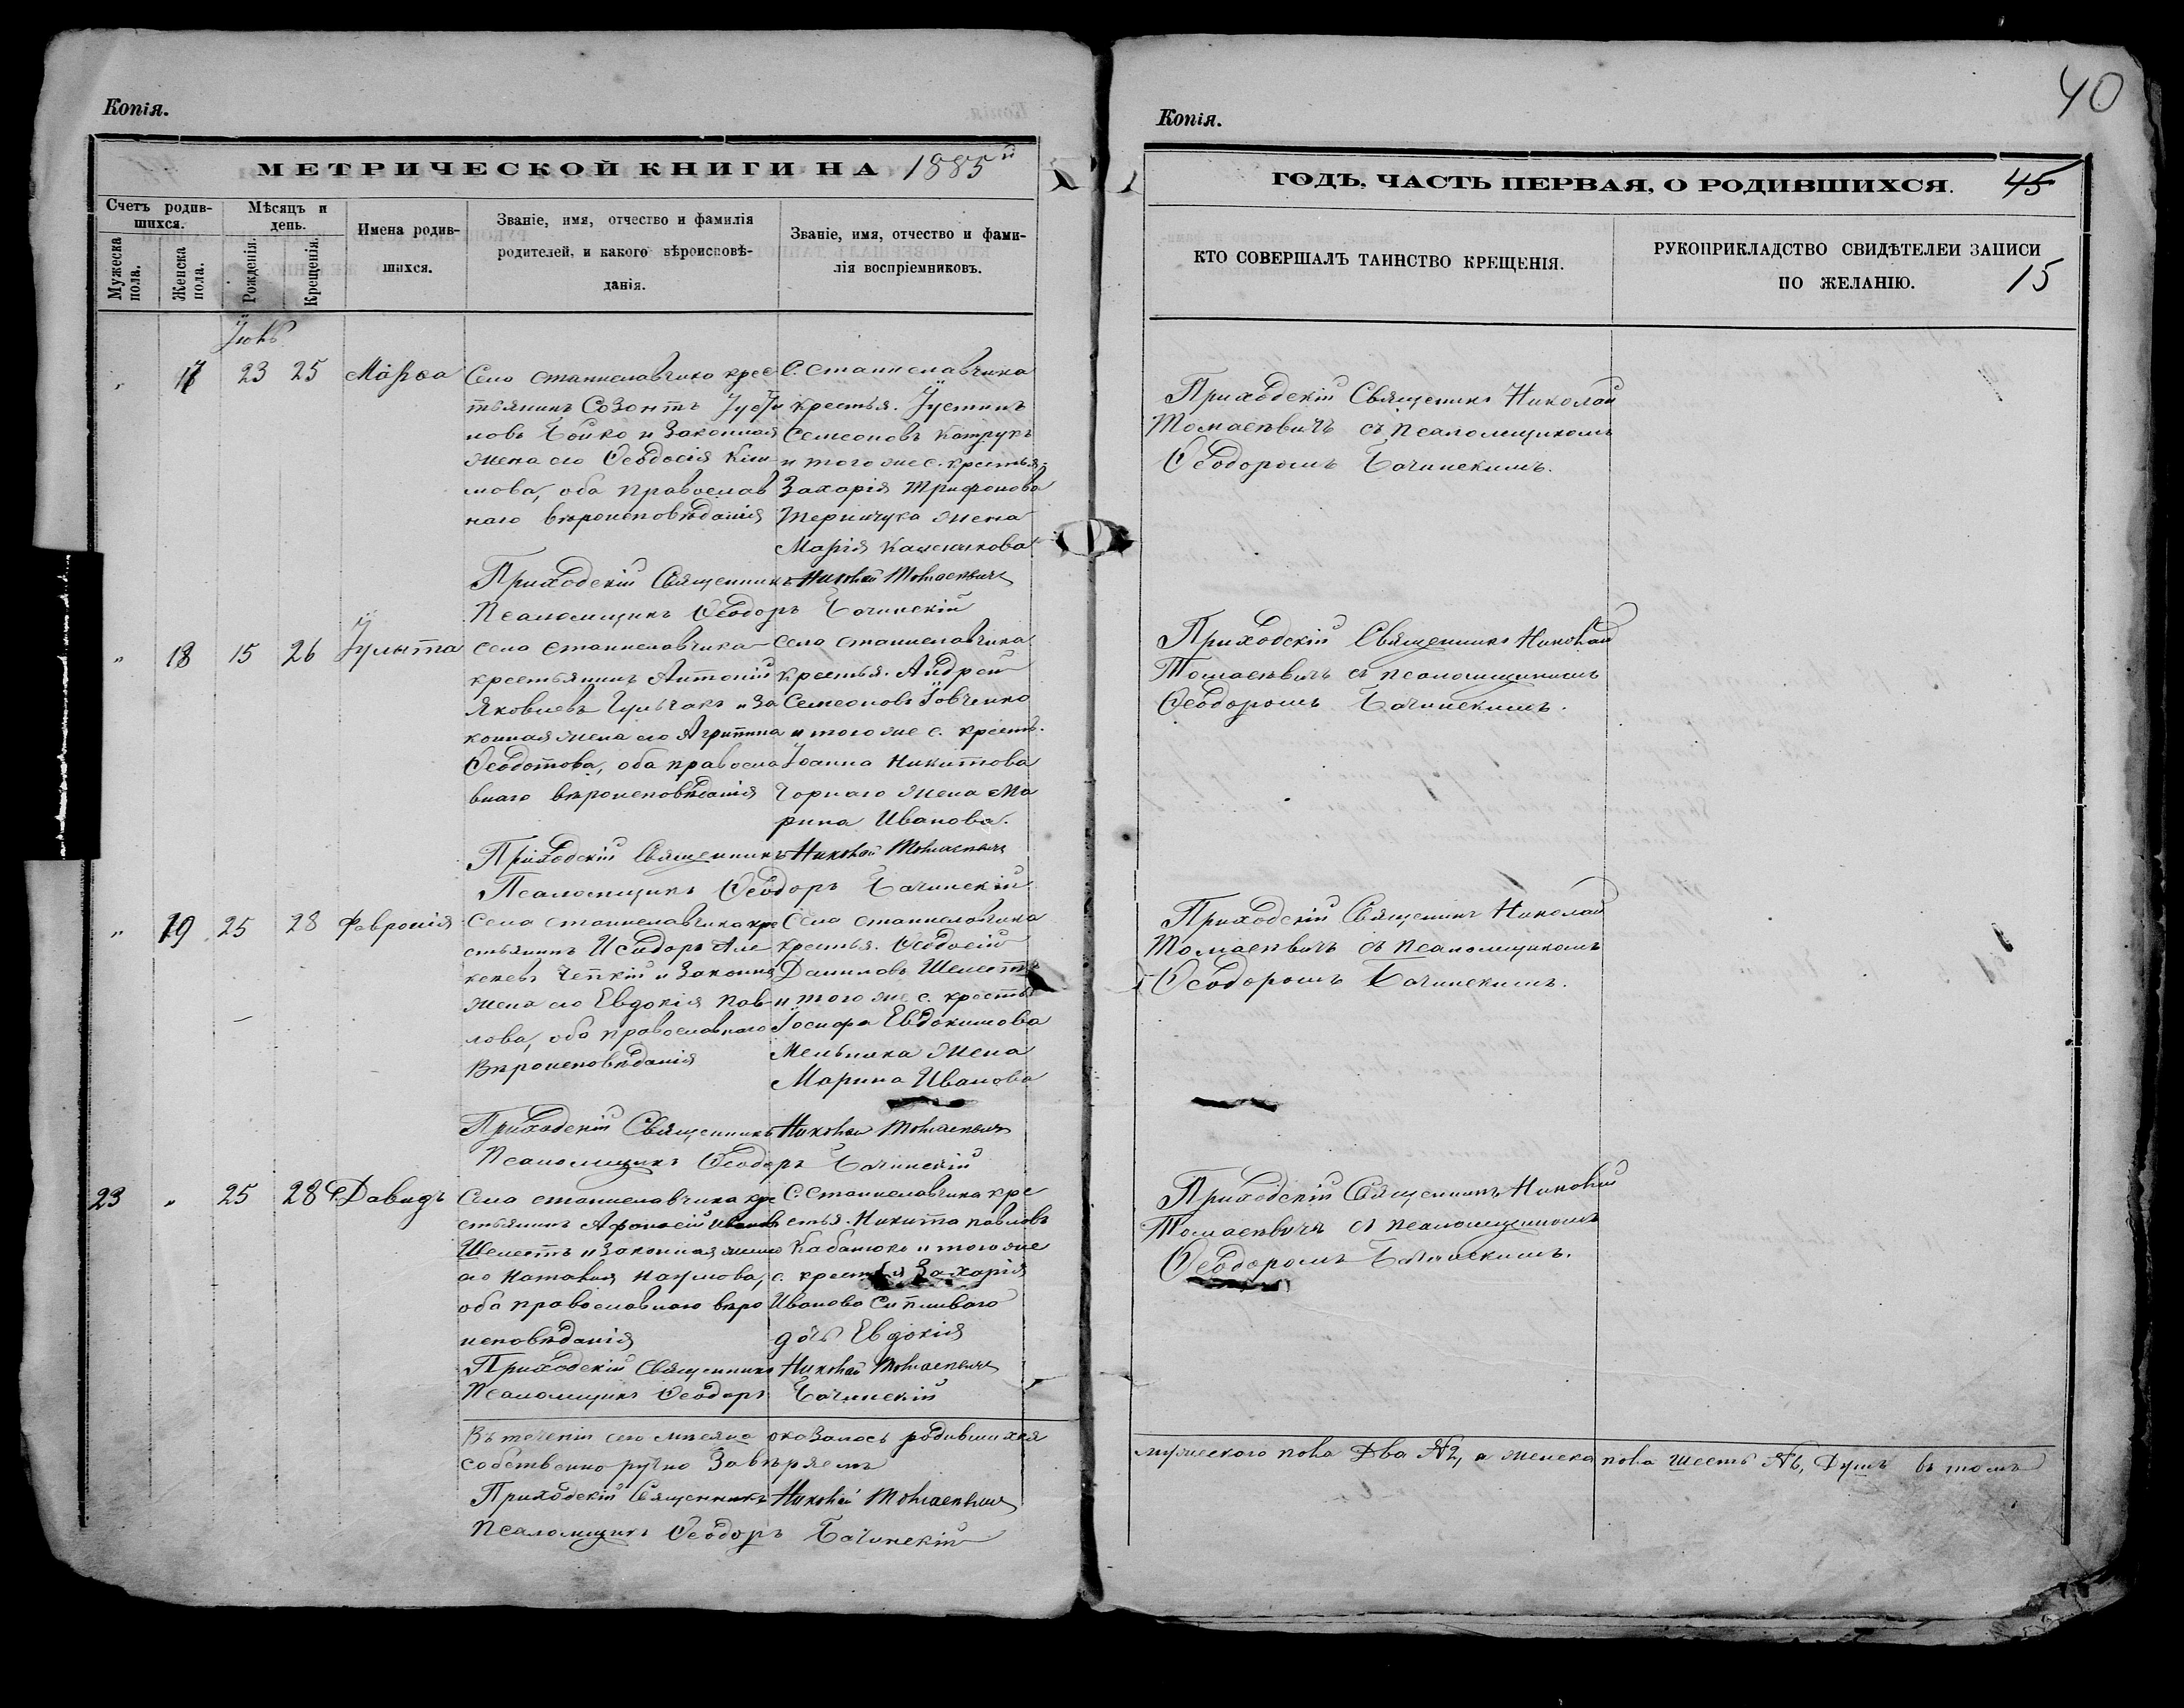 Копія.
МЕТРИЧЕСКОЙ КНИГИ НА 1885й
Счетъ родив-
шихся.
Мужеска пола.
Женска пола.
Мѣсяцъ и
день.
Рожденія.
Крещенія.
Имена родив-
шихся.
Званіе, имя, отчество и фамилія
родителей, и какого вѣроисповѣ-
данія.
Званіе, имя, отчество и фами-
лія воспріемниковъ.
„ 17 23 25 Марѳа
Села Станиславчика крес
тьянинъ Созонтъ Іусти
новъ Бойко и законная
жена его Ѳеодосія Кли
мова, оба православ
наго вѣроисповѣданія
С. Станиславчика
крестья. Іустинъ
Семеоновъ Катрукъ
и того же с. крестья-
Захарія Трифонова
жена
Марія
Приходскій Священникъ Николай Томасевичъ
Псаломщикъ Ѳеодоръ Бачинскій
„ 18 15 26 Іулитта
Села Станиславчика
крестьянинъ Антоній
Яковлевъ Гульчакъ и за
конная жена его Агрипина
Ѳеодотова, оба правосла
внаго вѣроисповѣданія
Села Станиславчика
крестья. Андрей
Семеоновъ Іовченко
и того же с. крестъ.
Іоанна Никитова
Чорнаго жена Ма
рина Иванова.
Приходскій Священникъ Николай Томасевичъ
Псаломщикъ Ѳеодоръ Бачинскій
„ 19 25 28 Февронія
Села Станиславчика кре
стьянинъ Исидоръ Але
ксѣевъ Чепкій и законная
жена его Евдокія Пав-
лова, оба православнаго
Вѣроисповѣданія
Села Станиславчика
крестья. Ѳеодосій
Даниловъ Шелестъ
и того же с. крестья
Іосифа Евдокимова
Мельника жена
Марина Иванова
Приходскій Священникъ Николай Томасевичъ
Псаломщикъ Ѳеодоръ Бачинскій
23 „ 25 28 Давидъ
Села Станиславчика кре
стьянинъ Афанасій Ивановъ
Шелестъ и законная жена
его Наталія Наумова,
оба православнаго вѣро
исповѣданія
С. Станиславчика кре
стья. Никита Павловъ
Кабанюко и того же
с. крестья Захарія
Иванова Сипливаго
дочь Евдокія
Приходскій Священникъ Николай Томасевичъ
Псаломщикъ Ѳеодоръ Бачинскій
Въ теченіи сего мѣсяца оказалось родившихся
собственно ручно завѣряемъ
Приходскій Священникъ Николай Томасевичъ
Псаломщикъ Ѳеодоръ Бачинскій
40
Копія.
ГОДЪ, ЧАСТЬ ПЕРВАЯ, О РОДИВШИХСЯ. 45
КТО СОВЕРШАЛЪ ТАИНСТВО КРЕЩЕНІЯ.
РУКОПРИКЛАДСТВО СВИДѢТЕЛЕЙ ЗАПИСИ
ПО ЖЕЛАНІЮ.
15
Приходскій Священникъ Николай
Томасевичъ съ псаломщикомъ
Ѳеодоромъ Бачинскимъ.
Приходскій Священникъ Николай
Томасевичъ съ псаломщикомъ
Ѳеодоромъ Бачинскимъ.
Приходскій Священникъ Николай
Томасевичъ съ псаломщикомъ
Ѳеодоромъ Бачинскимъ.
Приходскій Священникъ Николай
Томасевичъ съ псаломщикомъ
Ѳеодоромъ Бачинскимъ.
мужескаго пола Два №2, а женска пола шесть №6, Душъ въ томъ